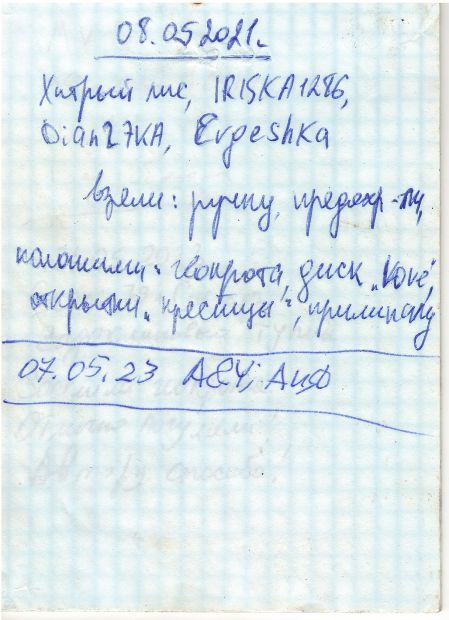 08.05.2021г.
Хитрый лис, IRISKA1286,
Dian27KA, EvgeshKa
взяли: ручку, предохр-ль,
положили: геокрота, диск „Love",
открытки „крестицы", прилипалу
07.05.23 A&Y; АиФ